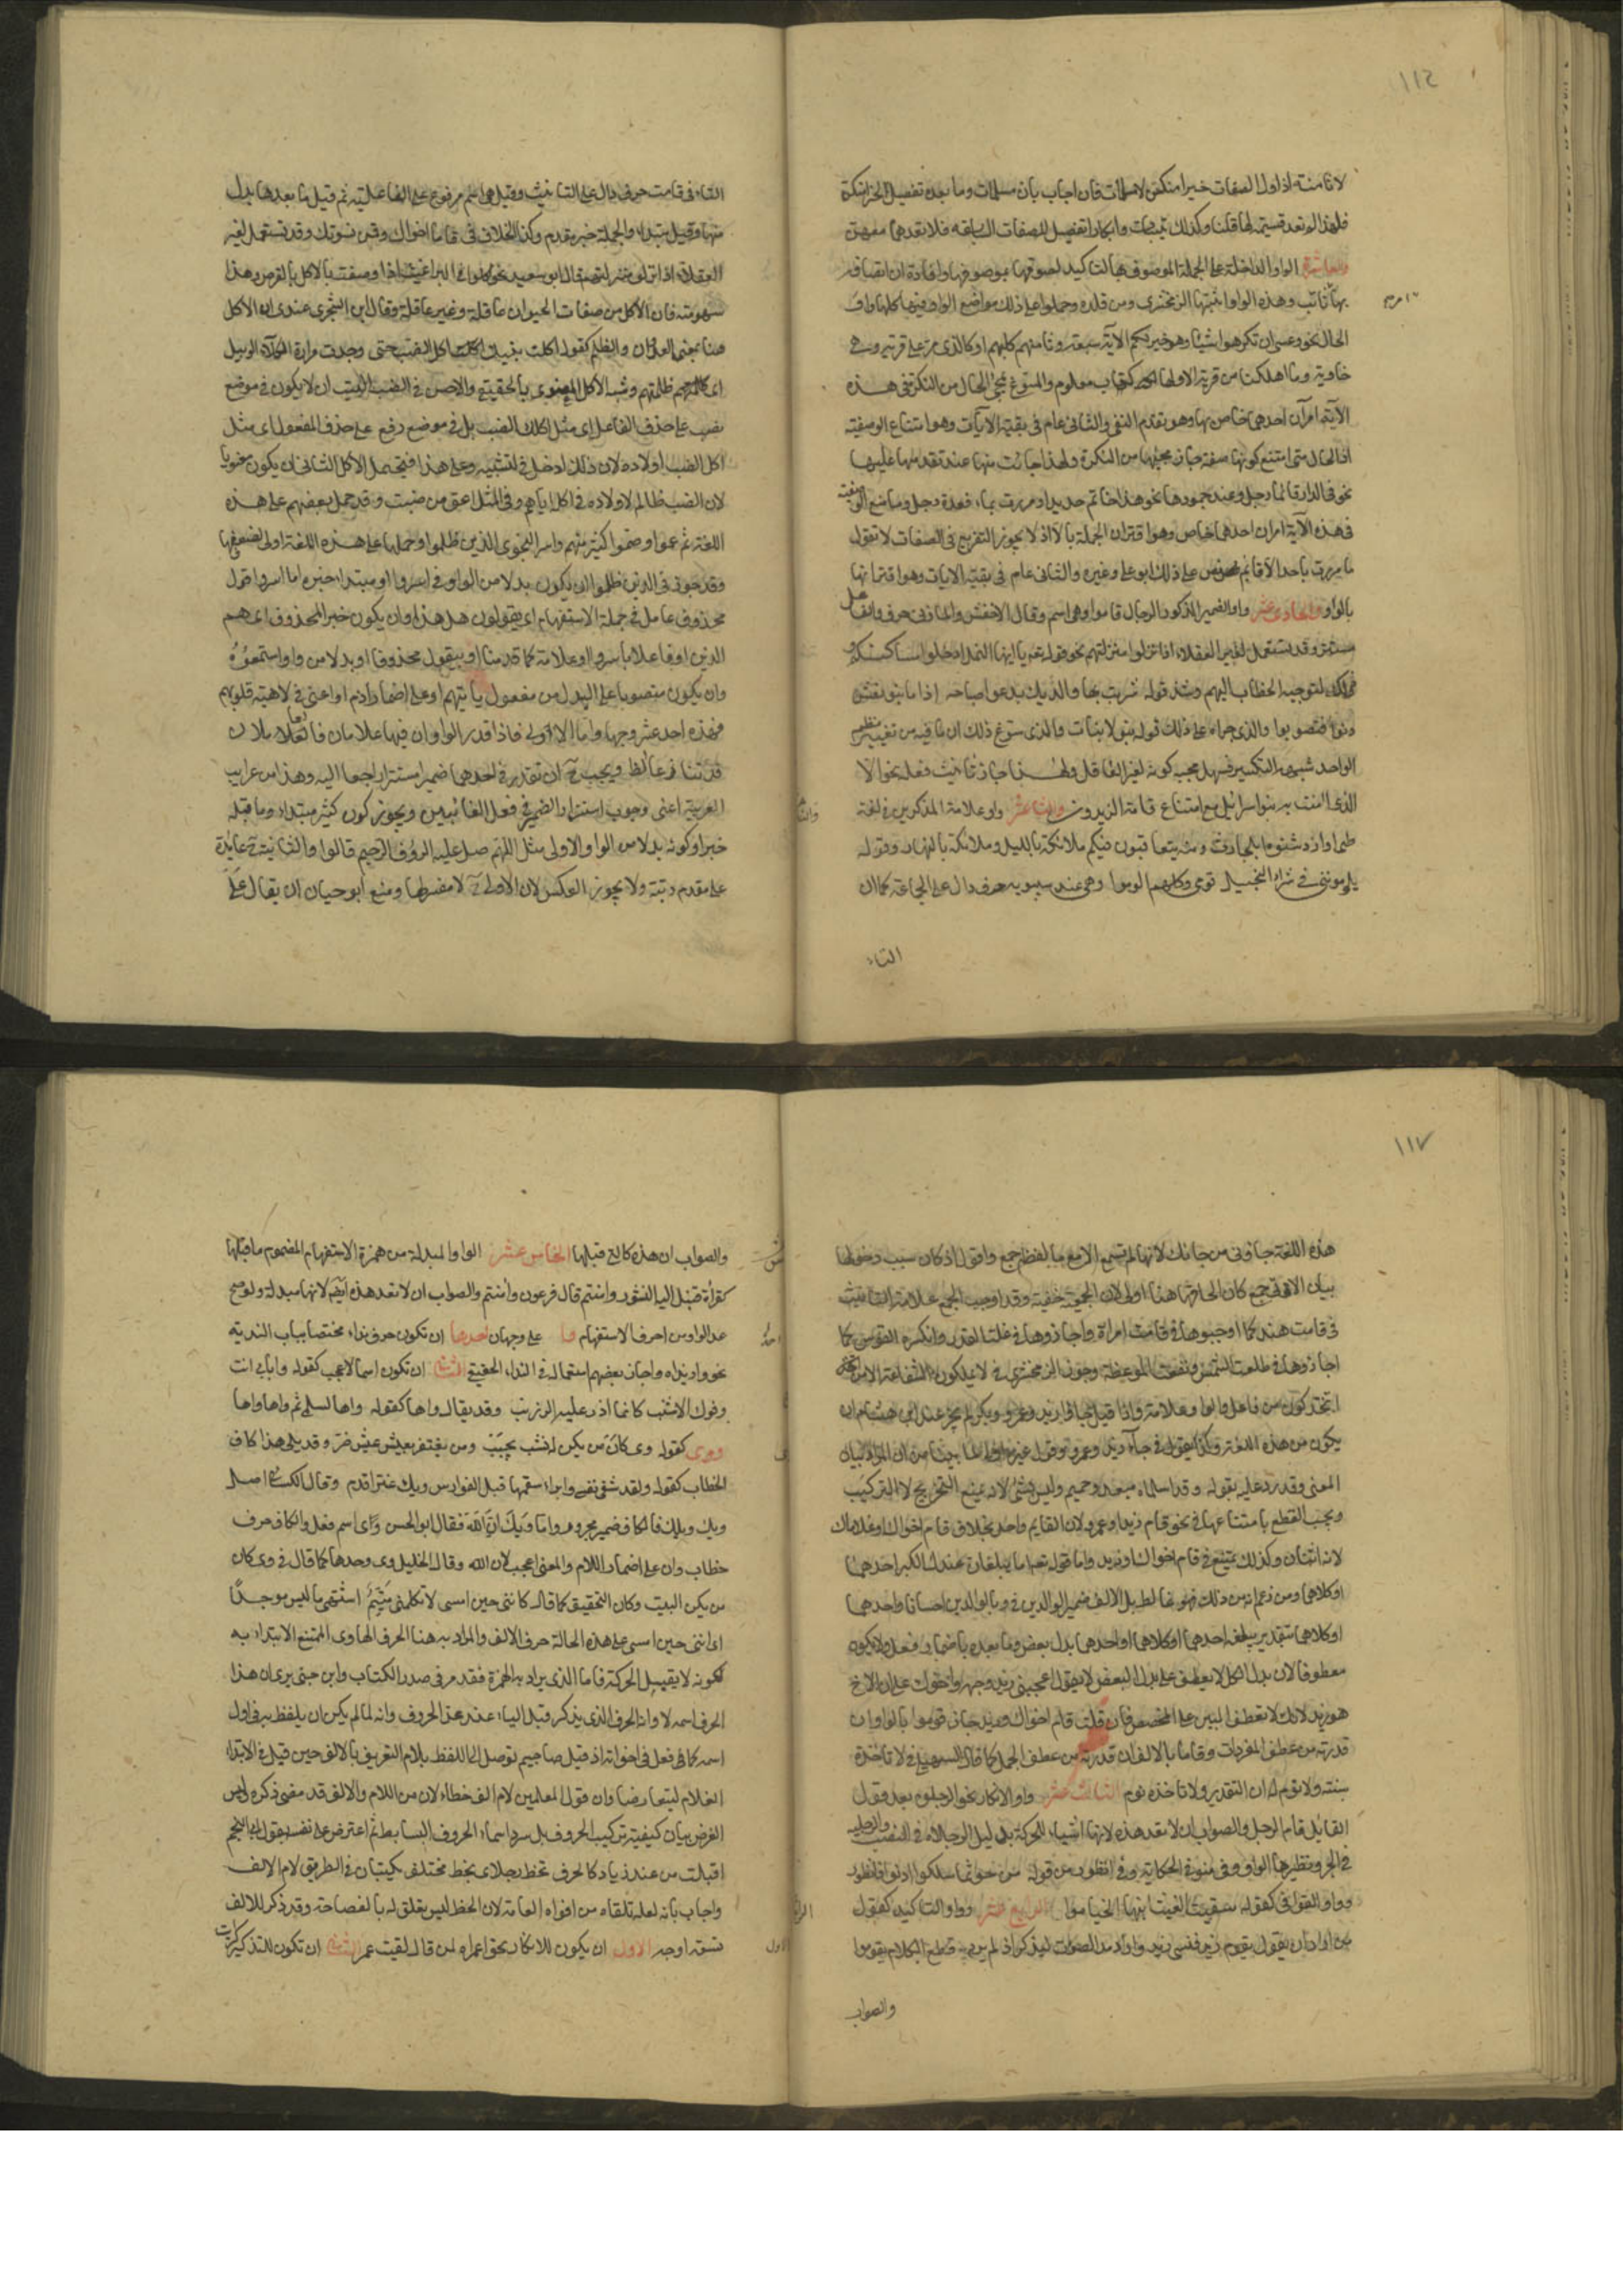 ١١٤
لا ثامنة اذ اول الصفات خيرا منكن لا مسلمات فان اجاب بان مسلمات وما بعده تفصيل لخيرا منكن
فلهذا لم تعد قسيمة لها قلنا وكذلك ثيبات وابكارا تفصيل للصفات السابقه فلا نعدهما معهن
والعاشرة الواو الداخلة على الجملة الموصوف بها لتاكيد لصوقها بموصوفها وافادة ان اتصافه
بها ثابت وهذه الواو اثبتها الزمخشري ومن قلده وحملوا على ذلك مواضع الواو فيها كلها واو
الحال نحو وعسى ان تكرهوا شيئا وهو خير لكم الآية سبعة وثامنهم كلبهم او كالذي مر على قرية وهي
خاوية وما اهلكنا من قرية الا ولها كتاب معلوم والمسوغ لمجئ الحال من النكرة في هذه
الآية امران احدهما خاص بها وهو تقدم النفي والثاني عام في بقية الآيات وهو امتناع الوصفية
اذ الحال متى امتنع كونها صفة جاز مجيئها من النكرة ولهذا جاءت منها عند تقدمها عليها
نحو في الدار قائما رجل وعند جمودها نحو هذا خاتم حديدا ومررت بماء قعدة رجل ومانع الوصفية
في هذه الآية امران احدهما خاص وهو اقتران الجملة بالا اذ لا يجوز التفريع في الصفات لا تقول
ما مررت باحد الا قائم نص على ذلك ابو علي وغيره والثاني عام في بقية الايات وهو اقترانها
بالواو والحادي عشر واو الضمير المذكور الرجال قاموا وهي اسم وقال الاخفش والمازني حرف والفاعل
مستتر وقد تستعمل لغير العقلاء اذا نزلوا منزلتهم نحو قوله تع يا ايها النمل ادخلوا مساكنكم و
ذلك لتوجيه الخطاب اليهم وشذ قوله شربت بها والديك يدعو صباحه اذا ما بنو نعش
دنوا فتصوبوا والذي جراه على ذلك قوله بنو لا بنات والذي سوغ ذلك ان ما فيه من تغيير نظم
الواحد شبهه بالتكسير فسهل مجيئه لغير العاقل ولهذا جاز تانيث فعله نحو الا
الذي امنت به بنو اسرائيل مع امتناع قامت الزيدون والثاني عشر واو علامة المذكرين في لغة
طي او ازد شنوءة او بلحارث ومنه يتعاقبون فيكم ملائكة بالليل وملائكة بالنهار وقوله
يلومونني في شراء النخيل قومي وكلهم الوموا وهي عند سيبويه حرف دال على الجماعة كما ان
التاء
التاء في قامت حرف دال على التانيث وقيل هي اسم مرفوع على الفاعلية ثم قيل ما بعدها بدل
منها وقيل مبتداء والجملة خبر مقدم وكذا الخلاف في قاما اخواك وقمن نسوتك وقد تستعمل لغير
العقلاء اذا نزلوا منزلتهم قال ابو سعيد نحو اكلوني البراغيث اذا وصفت بالاكل لا بالقرص وهذا
سهو منه فان الاكل من صفات الحيوان عاقلة وغير عاقلة وقال ابن الشجري عندي ان الاكل
هنا بمعنى العدوان والظلم كقوله اكلت بنيك اكل الضب حتى وجدت مرارة الكلاء الوبيل
اي ظلمتهم وشبه الاكل المعنوي بالحقيقي والاحسن في الضب في البيت ان لا يكون في موضع
نصب على حذف الفاعل اي مثل اكلك الضب بل في موضع رفع على حذف المفعول اي مثل
اكل الضب اولاده لان ذلك ادخل في التشبيه وعلى هذا فيحتمل الاكل الثاني ان يكون معنويا
لان الضب ظالم لاولاده في اكله اياهم وفي المثل اعق من ضب وقد حمل بعضهم على هذه
اللغة ثم عموا وصموا كثير منهم واسروا النجوى الذين ظلموا وحملها على هذه اللغة اولى لضعفها
وقد جوز في الذين ظلموا ان يكون بدلا من الواو في اسروا او مبتداء خبره اما اسروا او قول
محذوف عامل في جملة الاستفهام اي يقولون هل هذا وان يكون خبرا لمحذوف اي هم
الذين او فاعلا باسروا والواو علامة كما قدمنا او بيقول محذوفا او بدلا من واو استمعوه
وان يكون منصوبا على البدل من مفعول ياتيهم او على اضمار اذم او اعني في لاهية قلوبهم
فهذه احد عشر وجها واما الاية الاولى فاذا قدر الواوان فيها علامتان فالعاملان
قد تنازعا الظاهر ويجب ح ان تقدر في احدهما ضميرا مستترا راجعا اليه وهذا من غرايب
العربية اعني وجوب استتار الضمير في فعل الغائبين ويجوز كون كثير مبتداء وما قبله
خبرا وكونه بدلا من الواو الاولى مثل اللهم صل عليه الرؤف الرحيم قالوا والثانية ح عائدة
على متقدم رتبة ولا يجوز العكس لان الاولى ح لا مفسر لها ومنع ابو حيان ان يقال على
١١٧
هذه اللغة جاؤني من جاءك لانها لم تسمع الا مع ما لفظه جمع واقول اذ كان سبب دخولها
بيان ان الاتي جمع كان لحاقها هنا اولى لان الجمعية خفية وقد اوجب الجميع علامة التانيث
في قامت هند كما اوجبوها في قامت امراة واجازوها في غلت القدر وانكسرت القوس كما
اجازوها في طلعت الشمس ونفعت الموعظة وجوز الزمخشري في لا يملكون الشفاعة الا من
اتخذ كون من فاعلا والواو علامة واذا قيل جاؤا زيد وعمرو وبكر لم يجز عند ابن هشام ان
يكون من هذه اللغة وكذا يقول في جاءا زيد وعمرو وقول غيره اولى لما بينا من ان المراد بيان
المعنى وقد رد عليه بقوله وقد اسلماه مبعد وحميم وليس بشئ لانه يمنع التخريج لا التركيب
ويجب القطع بامتناعها في نحو قام زيد او عمرو لان القايم واحد بخلاف قام اخواك او غلاماك
لانه اثنان وكذلك تمتنع في قام اخواك او زيد واما قوله تع اما يبلغان عندك الكبر احدهما
او كلاهما ومن زعم انه من ذلك فهو غالط بل الالف ضمير الوالدين في وبالوالدين احسانا واحدهما
او كلاهما بتقدير يبلغه احدهما او كلاهما او احدهما بدل بعض وما بعده باضمار فعل ولا يكون
معطوفا لان بدل الكل لا يعطف على بدل البعض لا يقول اعجبني زيد وجهه واخوك على ان الاخ
هو زيد لانك لا تعطف المبين على المخصص فان قلت قام اخواك وزيد جاز قوموا بالواو ان
قدرته من عطف المفردات وقاما بالالف ان قدرته من عطف الجمل كما قال السهيلي في لا تاخذه
سنة ولا نوم ان التقدير ولا تاخذه نوم الثالث عشر واو الانكار نحو الرجلوه بعد قول
القائل قام الرجل والصواب ان لا تعد هذه لانها اشباع للحركة بدليل الرجلاه في النصب والرجليه
في الجر ونظيرها الواو في منو في الحكاية وفي انظور من قوله من حوثما سلكوا ادنو فانظور
وواو القوافي كقوله سقيت الغيث ايتها الخيامو الرابع عشر وواو التذكير كقول
من اراد ان يقول يقوم زيد فنسي زيد واراد مد الصوت ليتذكر اذ لم يرد قطع الكلام يقومو
والصواب
والصواب ان هذه كالتي قبلها الخامس عشر الواو المبدلة من همزة الاستفهام المضموم ما قبلها
كقراءة قنبل اليه النشور وامنتم قال فرعون وامنتم والصواب ان لا تعد هذه ايضا لانها مبدلة ولو صح
عد الواو من احرف الاستفهام وا على وجهان احدها ان تكون حرف نداء مختصا بباب الندبة
نحو وا زيداه واجاز بعضهم استعماله في النداء الحقيقي الثاني ان تكون اسما لاعجب كقوله وا بابي انت
وفوك الاشنب كانما ذر عليه الزرنب وقد يقال واها كقوله واها لسلمى ثم واها واها
ووي كقوله وي كان من يكن له نشب يحبب ومن يفتقر يعيش عيش ضر وقد يلي هذا كاف
الخطاب كقوله ولقد شفى نفسي وابراء سقمها قيل الفوارس ويك عنتر اقدم وقال الكسائي اصله
ويلك فالكاف ضمير مجرور واما ويك ان الله فقال ابو الحسن وي اسم فعل والكاف حرف
خطاب وان على اضمار اللام والمعنى اعجب لان الله وقال الخليل وي وحدها كما قال في وي كان
من يكن البيت وكان التحقيق كما قال كانني حين امسى لا تكلمني متيم اشتهي ما ليس موجودا
اي انني حين امسي على هذه الحالة حرف الالف والمراد به هنا الحرف الهاوي الممتنع الابتداء به
لكونه لا يقبل الحركة فاما الذي يراد به الهمزة فقد مر في صدر الكتاب وابن جني يرى ان هذا
الحرف اسمه لا وانه الحرف الذي يذكر قبل الياء عند عد الحروف وانه لما لم يكن ان يلفظ به في اول
اسمه كما فعل في اخواته اذ قيل صاد جيم توصل الى اللفظ بلام التعريف بالالف حين قيل في الابتداء
الغلام ليتقارضا وان قول المعلمين لام الف خطاء لان من اللام والالف قد مضى ذكره وليس
الغرض بيان كيفية تركيب الحروف بل سرد اسماء الحروف البسايط ثم اعترض على نفسه بقول ابي النجم
اقبلت من عند زياد كالخرف تخط رجلاي بخط مختلف تكتبان في الطريق لام الالف
واجاب بانه لعله تلقاه من افواه العامة لان الخط ليس يقلق له بالفصاحة وقد ذكر للالف
تسعة اوجه الاول ان يكون للانكار نحو اعمراه لمن قال لقيت عمرا الثاني ان تكون للتذكير كرايت